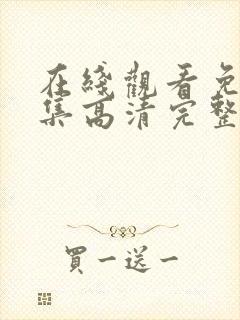 在綫觀看免
集高清完整
買一送一